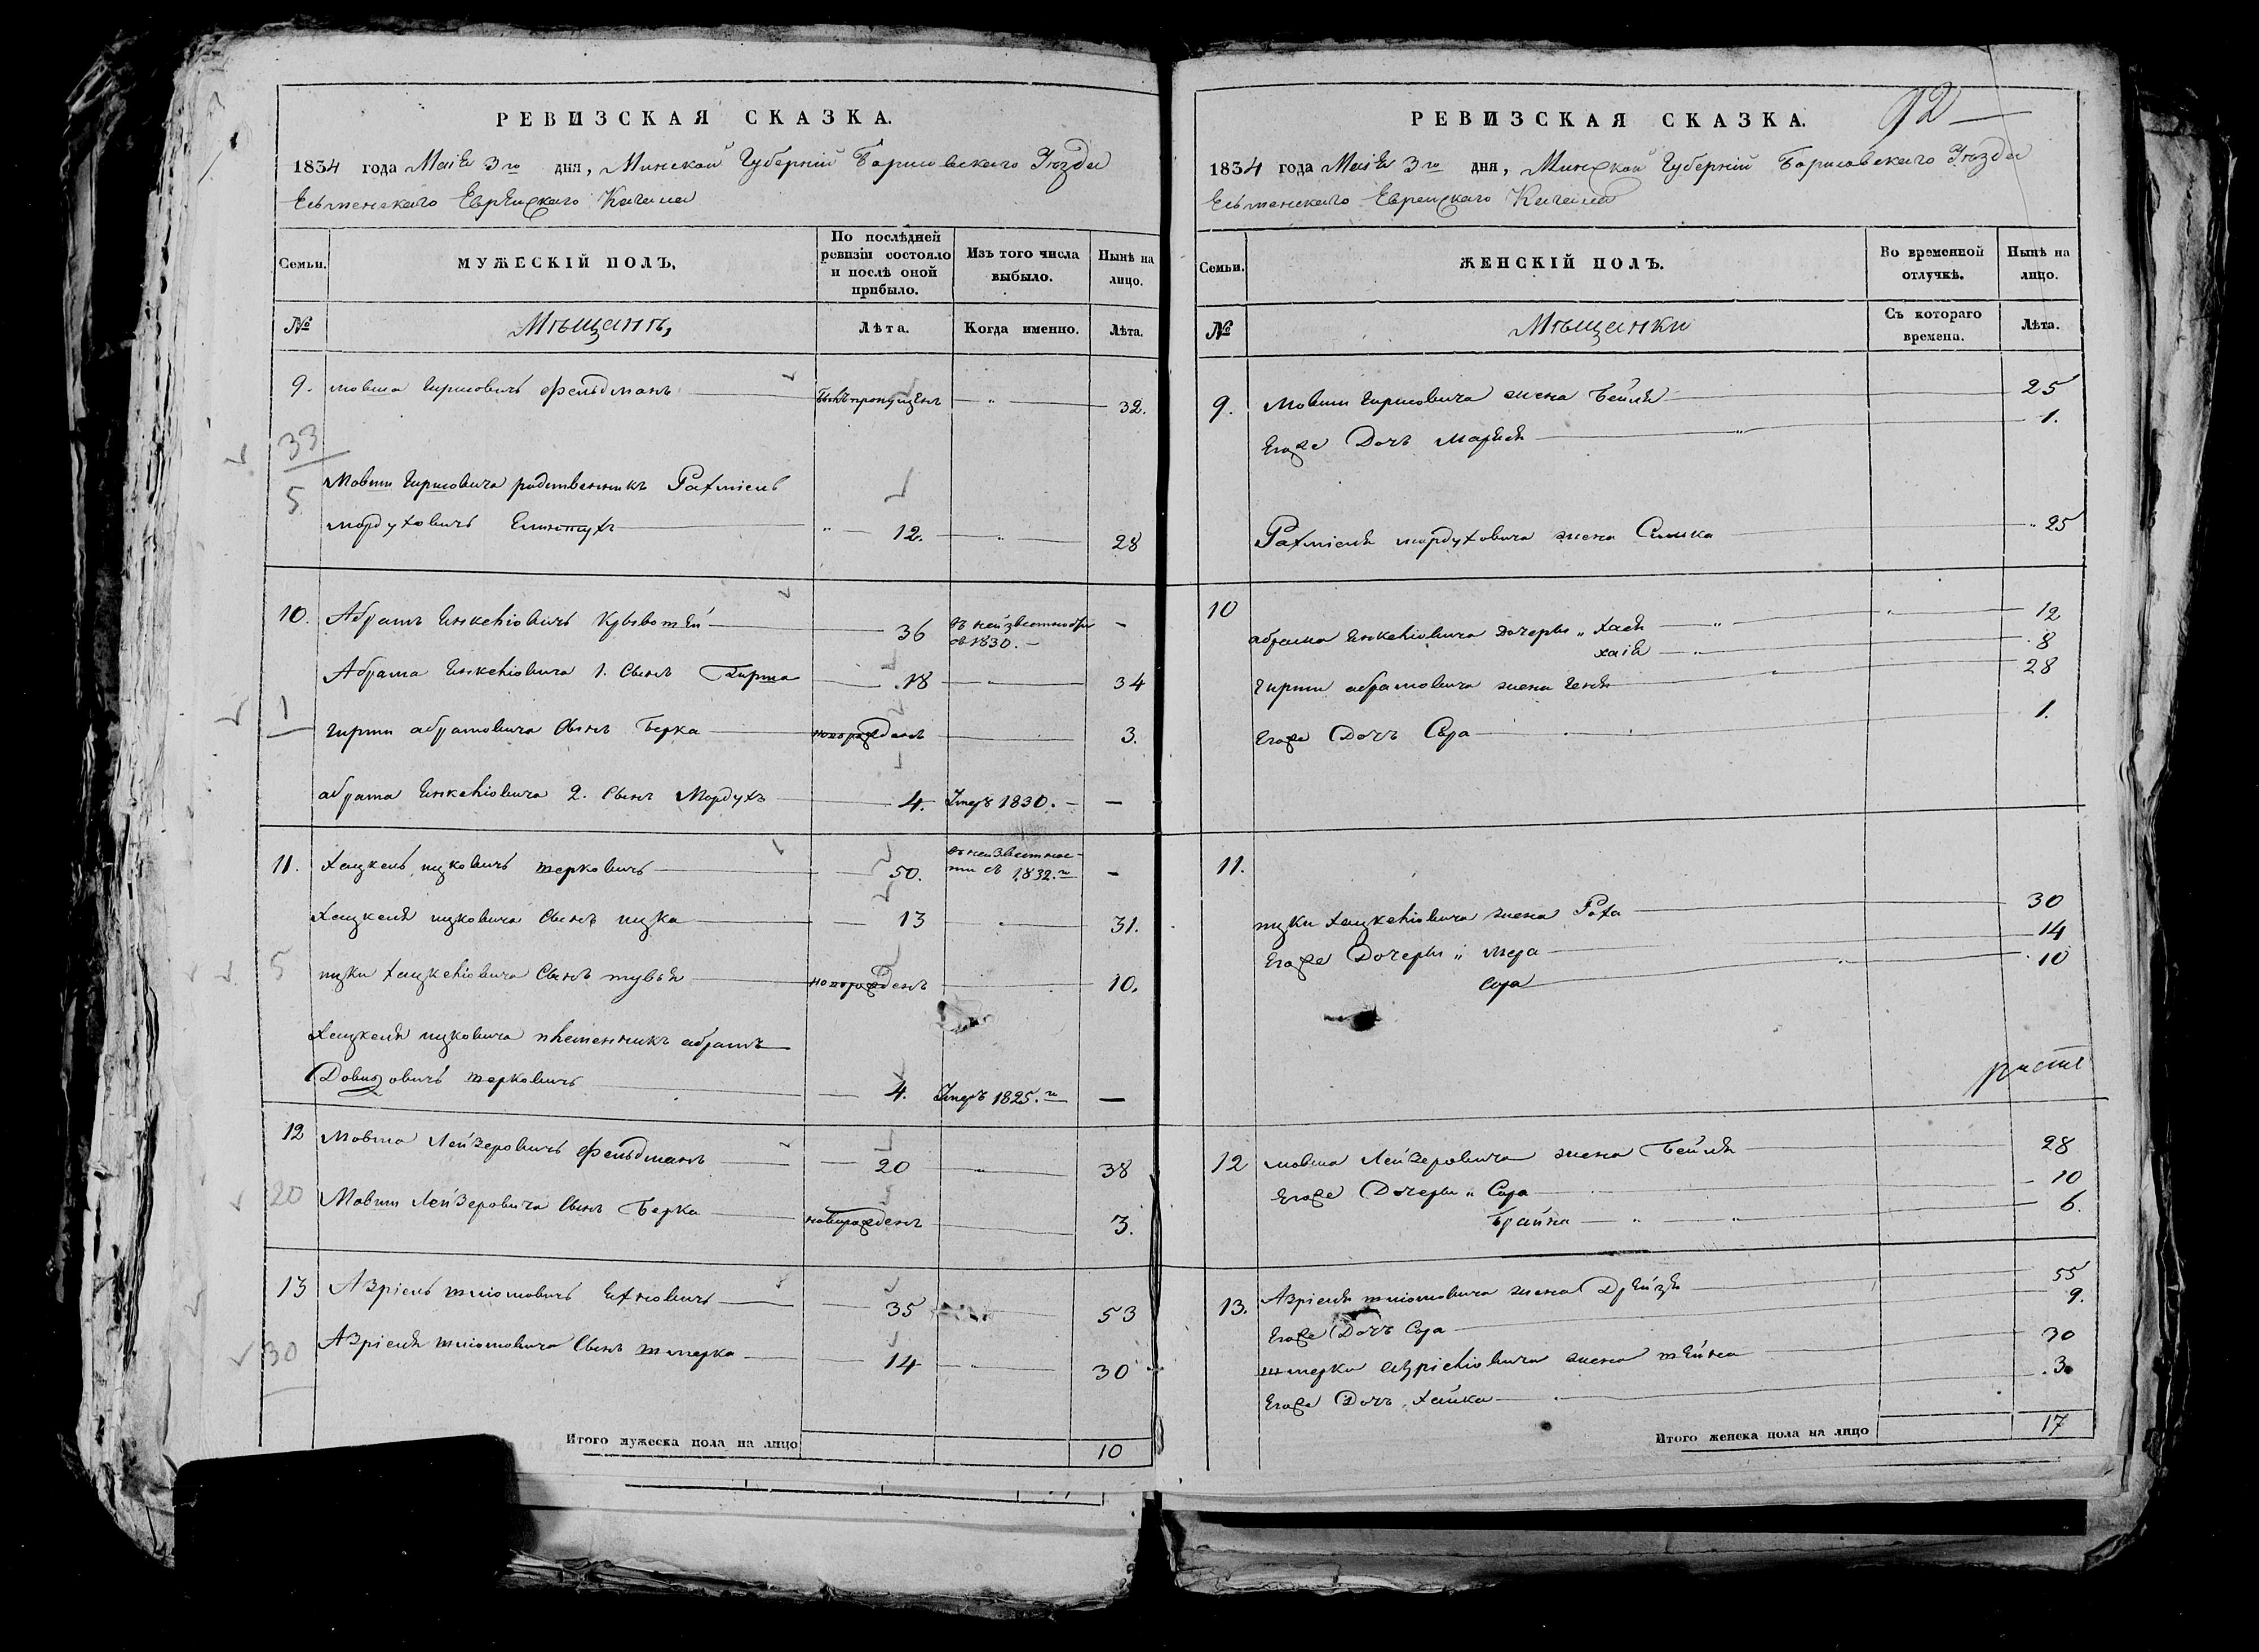 РЕВИЗСКАЯ СКАЗКА.
1834 года Маія 3го дня, Минской Губерніи Борисовскаго Уѣзда
Еврейскаго Кагала
Семьи.
МУЖЕСКІЙ ПОЛЪ.
По послѣдней ревизіи состояло и послѣ оной прибыло.
Изъ того числа выбыло.
Нынѣ на лицо.
№
Мѣщанъ,
Лѣта.
Когда именно.
Лѣта.
9. мовша гиршовичъ фельдманъ былъ пропущенъ 32.
33
5
Мовши гиршовича родственникъ Рахміель
мордуховичъ 12. 28
10. Абрамъ 36 въ неизвестности съ 1830. —
Абрама 1. Сынъ Гирша 18 34
1
гирши абрамовича сынъ Берка новорожденъ 3.
абрама 2. сынъ Мордухъ 4. Умеръ 1830. —
11. Хацкель ицковичъ терковичъ 50. въ неизвестности съ 1832.го —
Хацкеля ицковича сынъ ицка 13 31.
5
ицки хацкеліовича сынъ тувья новорожденъ 10.
Хацкеля ицковича племенникъ абрамъ
Довидовичъ терковичъ 4. Умеръ 1825.го —
12 Мовша Лейзеровичъ фельдманъ 20 38
20
Мовши Лейзеровича сынъ Берка новорожденъ 3.
13 Азріель шліомовичъ 35 53
30
Азріеля шліомовича сынъ шмерка 14 30
Итого мужеска пола на лицо 10
РЕВИЗСКАЯ СКАЗКА.
92
1834 года Маія 3го дня, Минской Губерніи Борисовскаго Уѣзда
Еврейскаго Кагала
Семьи.
ЖЕНСКІЙ ПОЛЪ.
Во временной отлучкѣ.
Нынѣ на лицо.
№
Мѣщанки
Съ котораго времена.
Лѣта.
9. Мовши гиршовича жена Бейля 25
Егоже Дочь Марыя 1.
Рахміеля мордуховича жена Симка 25
10 абрама дочеры „ Хася 12
хаія 8
гирши абрамовича жена геня 28
Егоже Дочь Сора 1.
11.
ицки хацкеліовича жена Роха 30
Егоже Дочеры „ мера 14
сора 10
12 мовша Лейзеровича жена Бейля 28
Егоже Дочеры „ Сора 10
Брайна 6.
13. Азріеля шліомовича жена Дрейзя 55
Егоже Дочь Сора 9.
шмерки азріеліовича жена шейна 30
Егоже Дочь Хайка 3
Итого женска пола на лицо 17